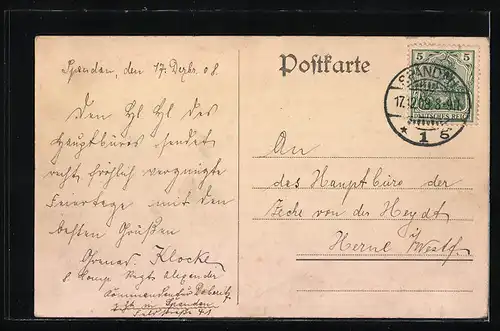 Spandau, den 17. Dezbr. 08.
Den H. H. des
Hauptbüros sendet
recht fröhlich vergnügte
Feiertage mit den
besten Grüßen
Grenad. Klocke
8 Komp. Regts. Alexander
Kommandantur
z. Zt. in Spandau
Postkarte
5 5
DEUTSCHES REICH
SPANDAU
17.12.08
* 1 g
An
das Hauptbüro der
Zeche von der Heydt
i/Westf.
Herne